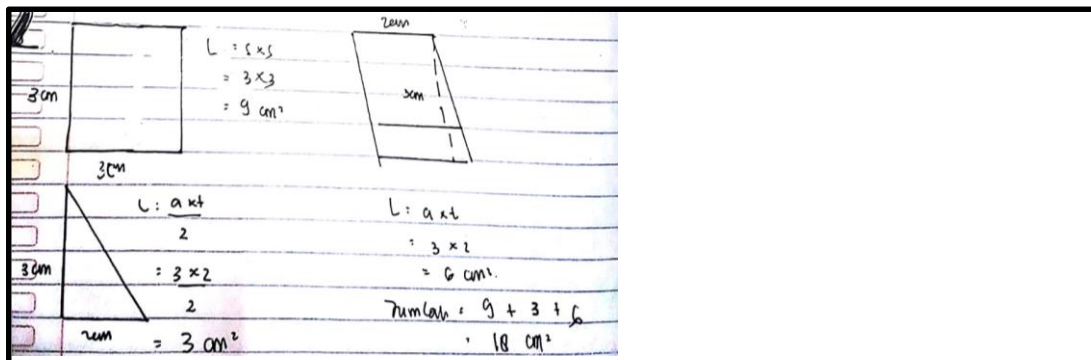 3 cm
3cm
L = s x s
= 3 x 3
= 9 cm²
2cm
3cm
3 cm
2cm
L : a x t
2
= 3 x 2
2
= 3 cm²
L : a x t
: 3 x 2
= 6 cm².
Jumlah = 9 + 3 + 6
= 18 cm²